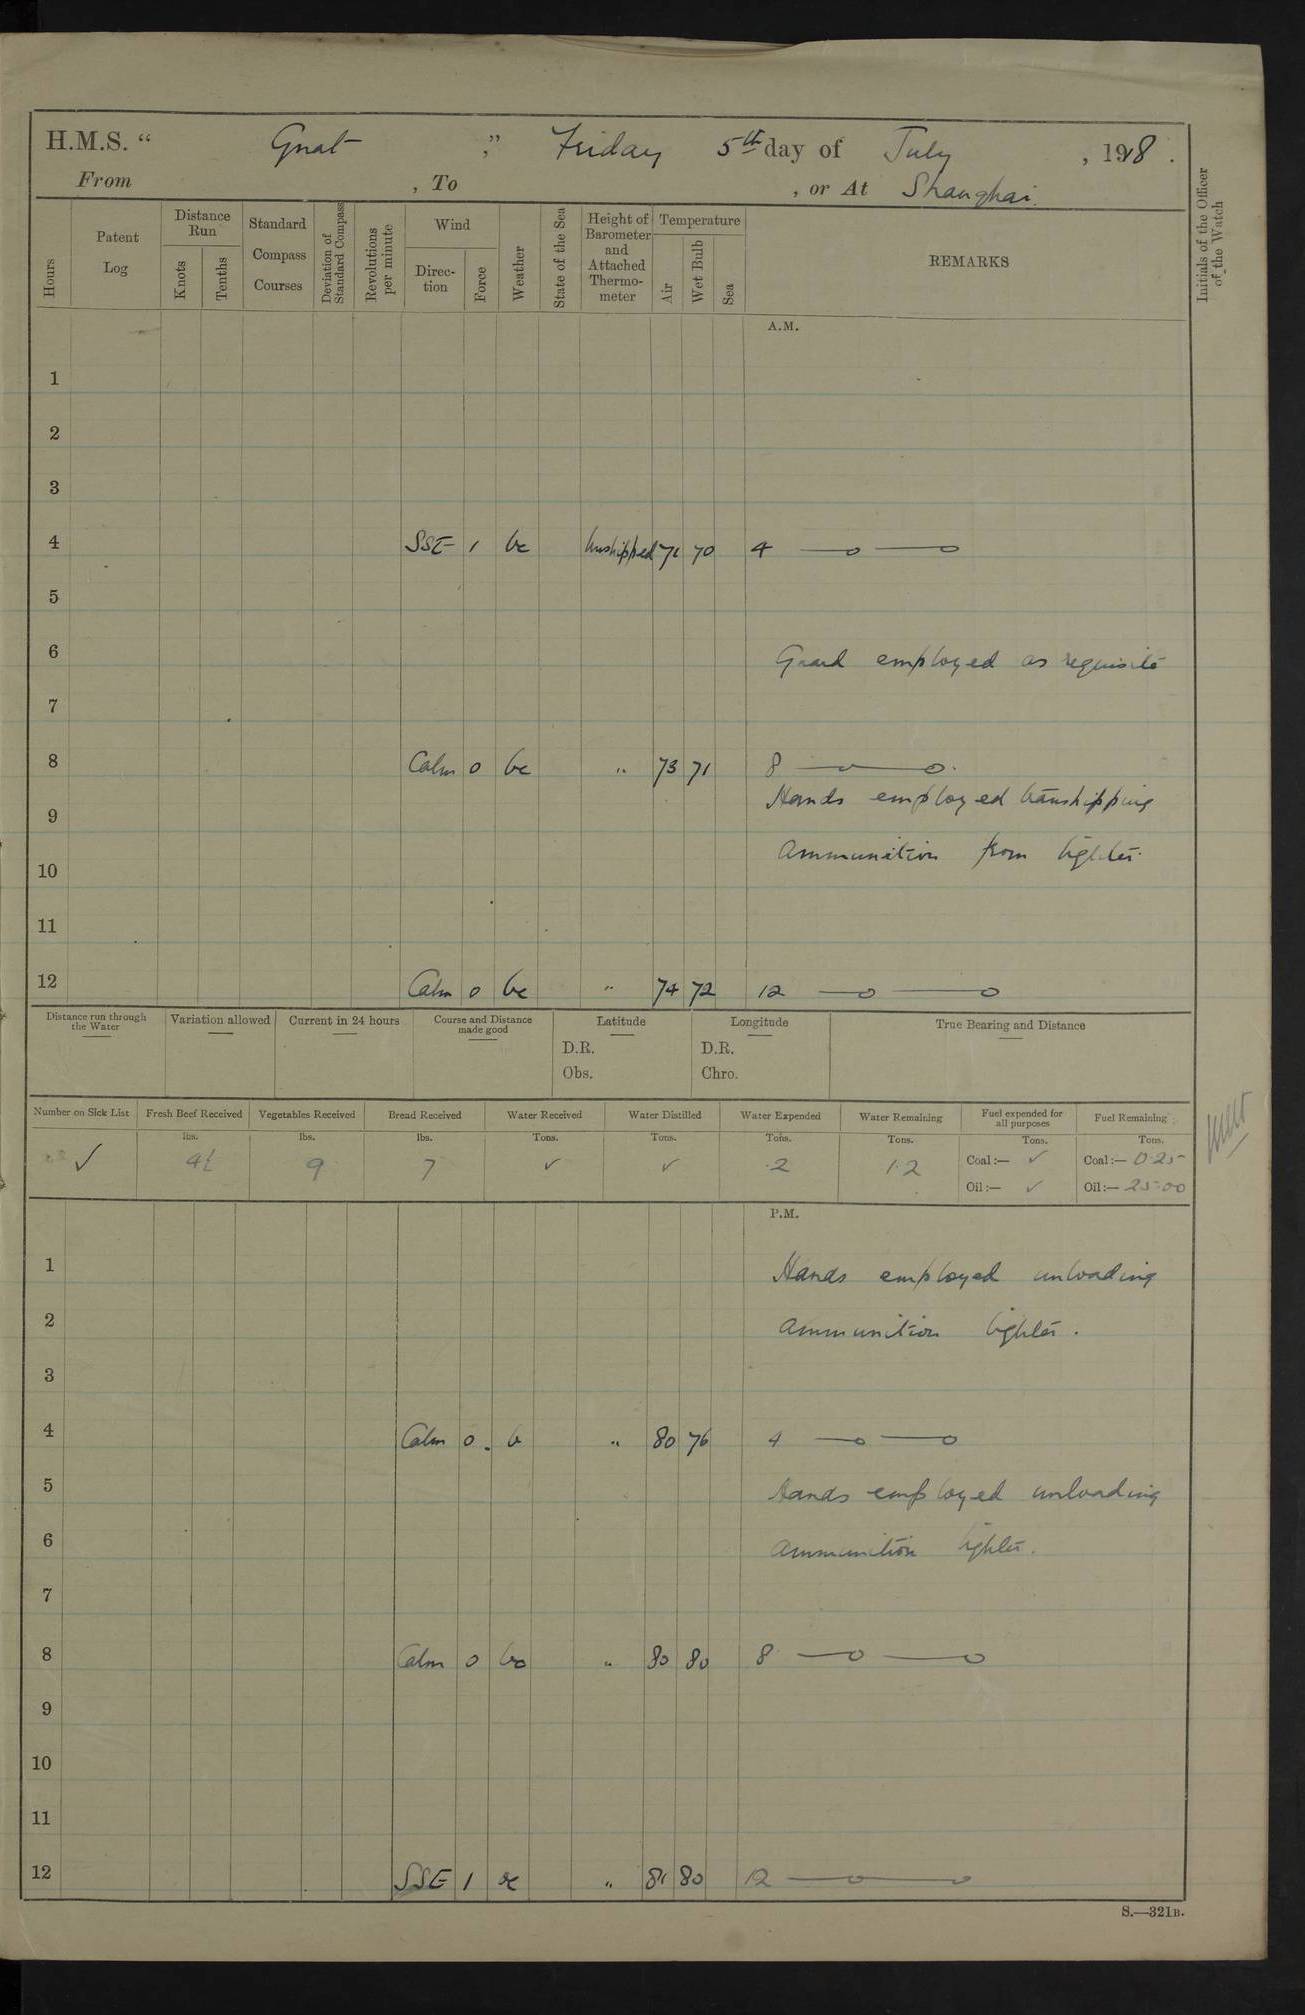 H.M.S. “ Gnat ,” Friday 5th day of July , 1918 .
From , To , or At Shanghai.
Hours
Patent Log
Distance Run
Knots
Tenths
Standard Compass Courses
Deviation of Standard Compass
Revolutions per minute
Wind
Direc-tion
Force
Weather
State of the Sea
Height of Barometer and Attached Thermo-meter
Temperature
Air
Wet Bulb
Sea
REMARKS
Initials of the Officer of the Watch
A.M.
1
2
3
4 SSE 1 bc Unshipped 71 70 4 —o —o
5
6 Guard employed as requisite
7
8 Calm 0 bc " 73 71 8 —o —o.
Hands employed transhipping
9
Ammunition from lighter.
10
11
12 Calm 0 bc " 74 72 12 —o —o
Distance run through the Water
Variation allowed
Current in 24 hours
Course and Distance made good
Latitude
D.R.
Obs.
Longitude
D.R.
Chro.
True Bearing and Distance
Number on Sick List
Fresh Beef Received
Vegetables Received
Bread Received
Water Received
Water Distilled
Water Expended
Water Remaining
Fuel expended for all purposes
Fuel Remaining
lbs. lbs. lbs. Tons. Tons. Tons. Tons. Tons. Tons.
✓ 9 7 ✓ ✓ .2 1.2 Coal:— ✓ Coal:— 0.25
Oil:— ✓ Oil:— 25.00
P.M.
1 Hands employed unloading
2 Ammunition lighter.
3
4 Calm 0 . b " 80 76 4 —o —o
5 Hands employed unloading
6 Ammunition lighter.
7
8 Calm 0 bc " 80 80 8 —o —o
9
10
11
12 SSE 1 " 81 80 12 —o —o
S.—321B.